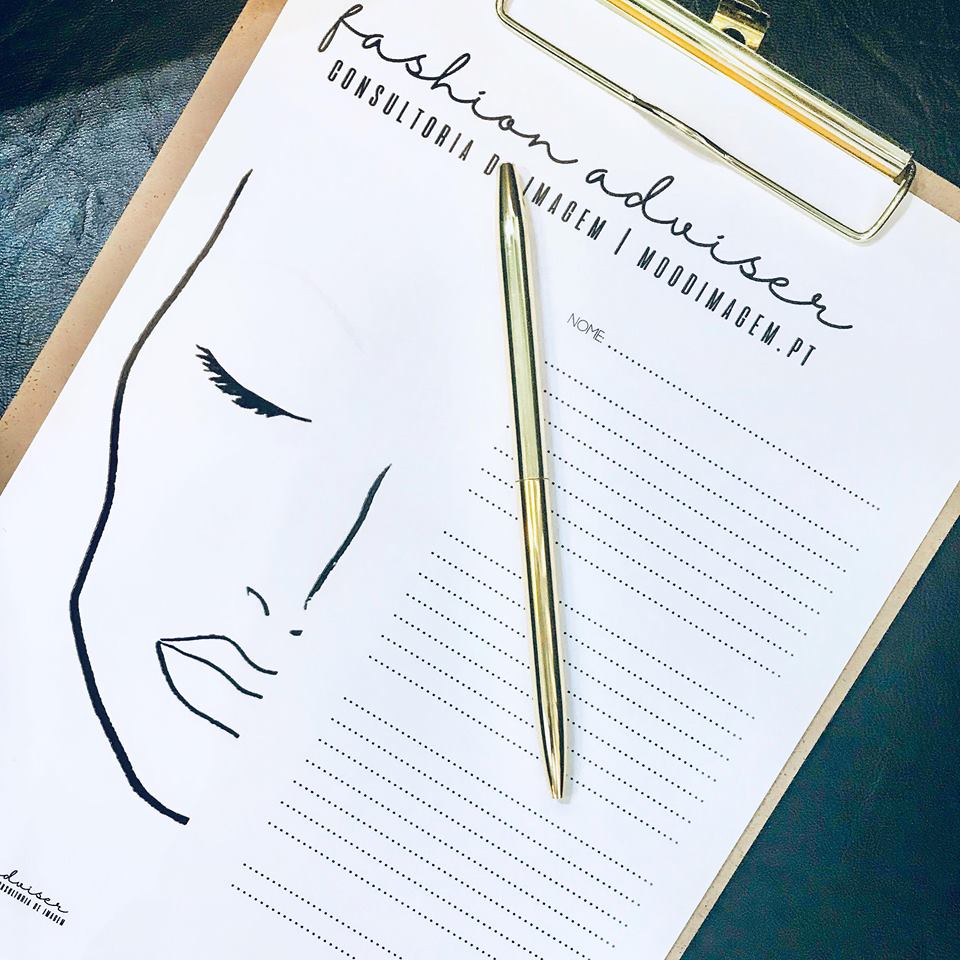 fashion adviser
CONSULTORIA DE IMAGEM | MOODIMAGEM.PT
NOME
adviser
CONSULTORIA DE IMAGEM